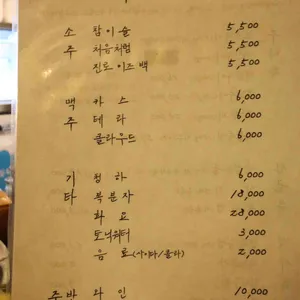 소 참이슬 5,500
주 처음처럼 5,500
진로이즈백 5,500
맥 카스 6,000
주 테라 6,000
클라우드 6,000
기 청하 6,000
타 복분자 18,000
화요 28,000
토닉워터 3,000
음료(사이다/콜라) 2,000
주방 라인 10,000